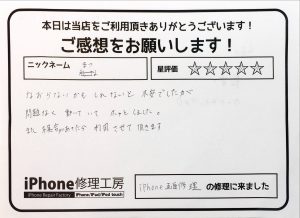 本日は当店をご利用頂きありがとうございます!
ご感想をお願いします!
ニックネーム
星評価 ☆☆☆☆☆
なおらないかもしれないと 不安でしたが
問題なく 動いていて ホッとしました。
また 機会があったら 利用 させて 頂きます
iPhone修理工房
iPhone Repair Factory
iPhone/iPad/iPod touch
iPhone画面修理 の修理に来ました